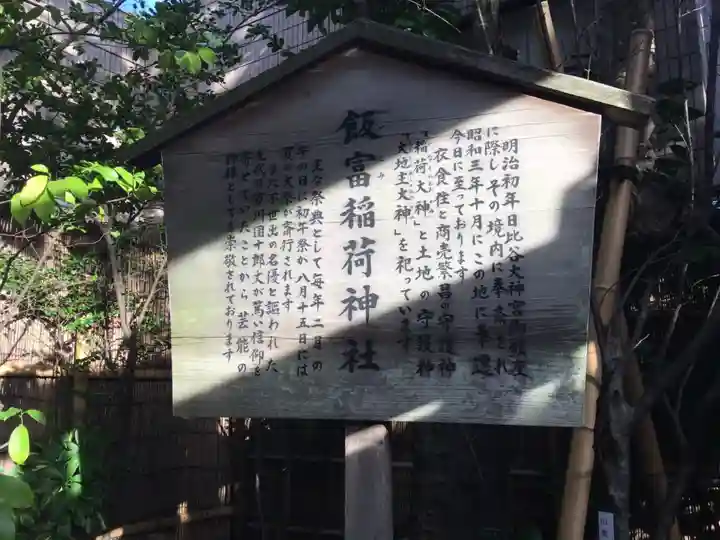 飯富稲荷神社
明治初年日比谷大神宮御鎮座
に際し その境内に奉斎され
昭和三年十月にこの地に奉遷
今日に至っております
衣食住と商売繁昌の守護神
「稲荷大神」と土地の守護神
「大地主大神」を祀っています
主な祭典として毎年二月の
午の日に初午祭が八月十五日には
夏の大祭が斎行されます
不世出の名優と謳われた
九代目市川団十郎丈が篤い信仰を
寄せていたことから 芸能の
神様としても崇敬されております